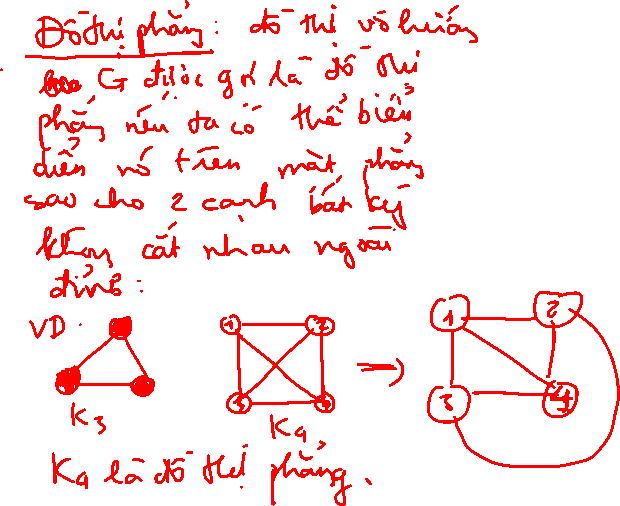 Đồ thị phẳng: đồ thị vô hướng
G được gọi là đồ thị
phẳng nếu ta có thể biểu
diễn nó trên mặt phẳng
sao cho 2 cạnh bất kỳ
không cắt nhau ngoài
đỉnh:
VD:
1 2 => 1 2
3 4 3 4
K3 K4
K4 là đồ thị phẳng.